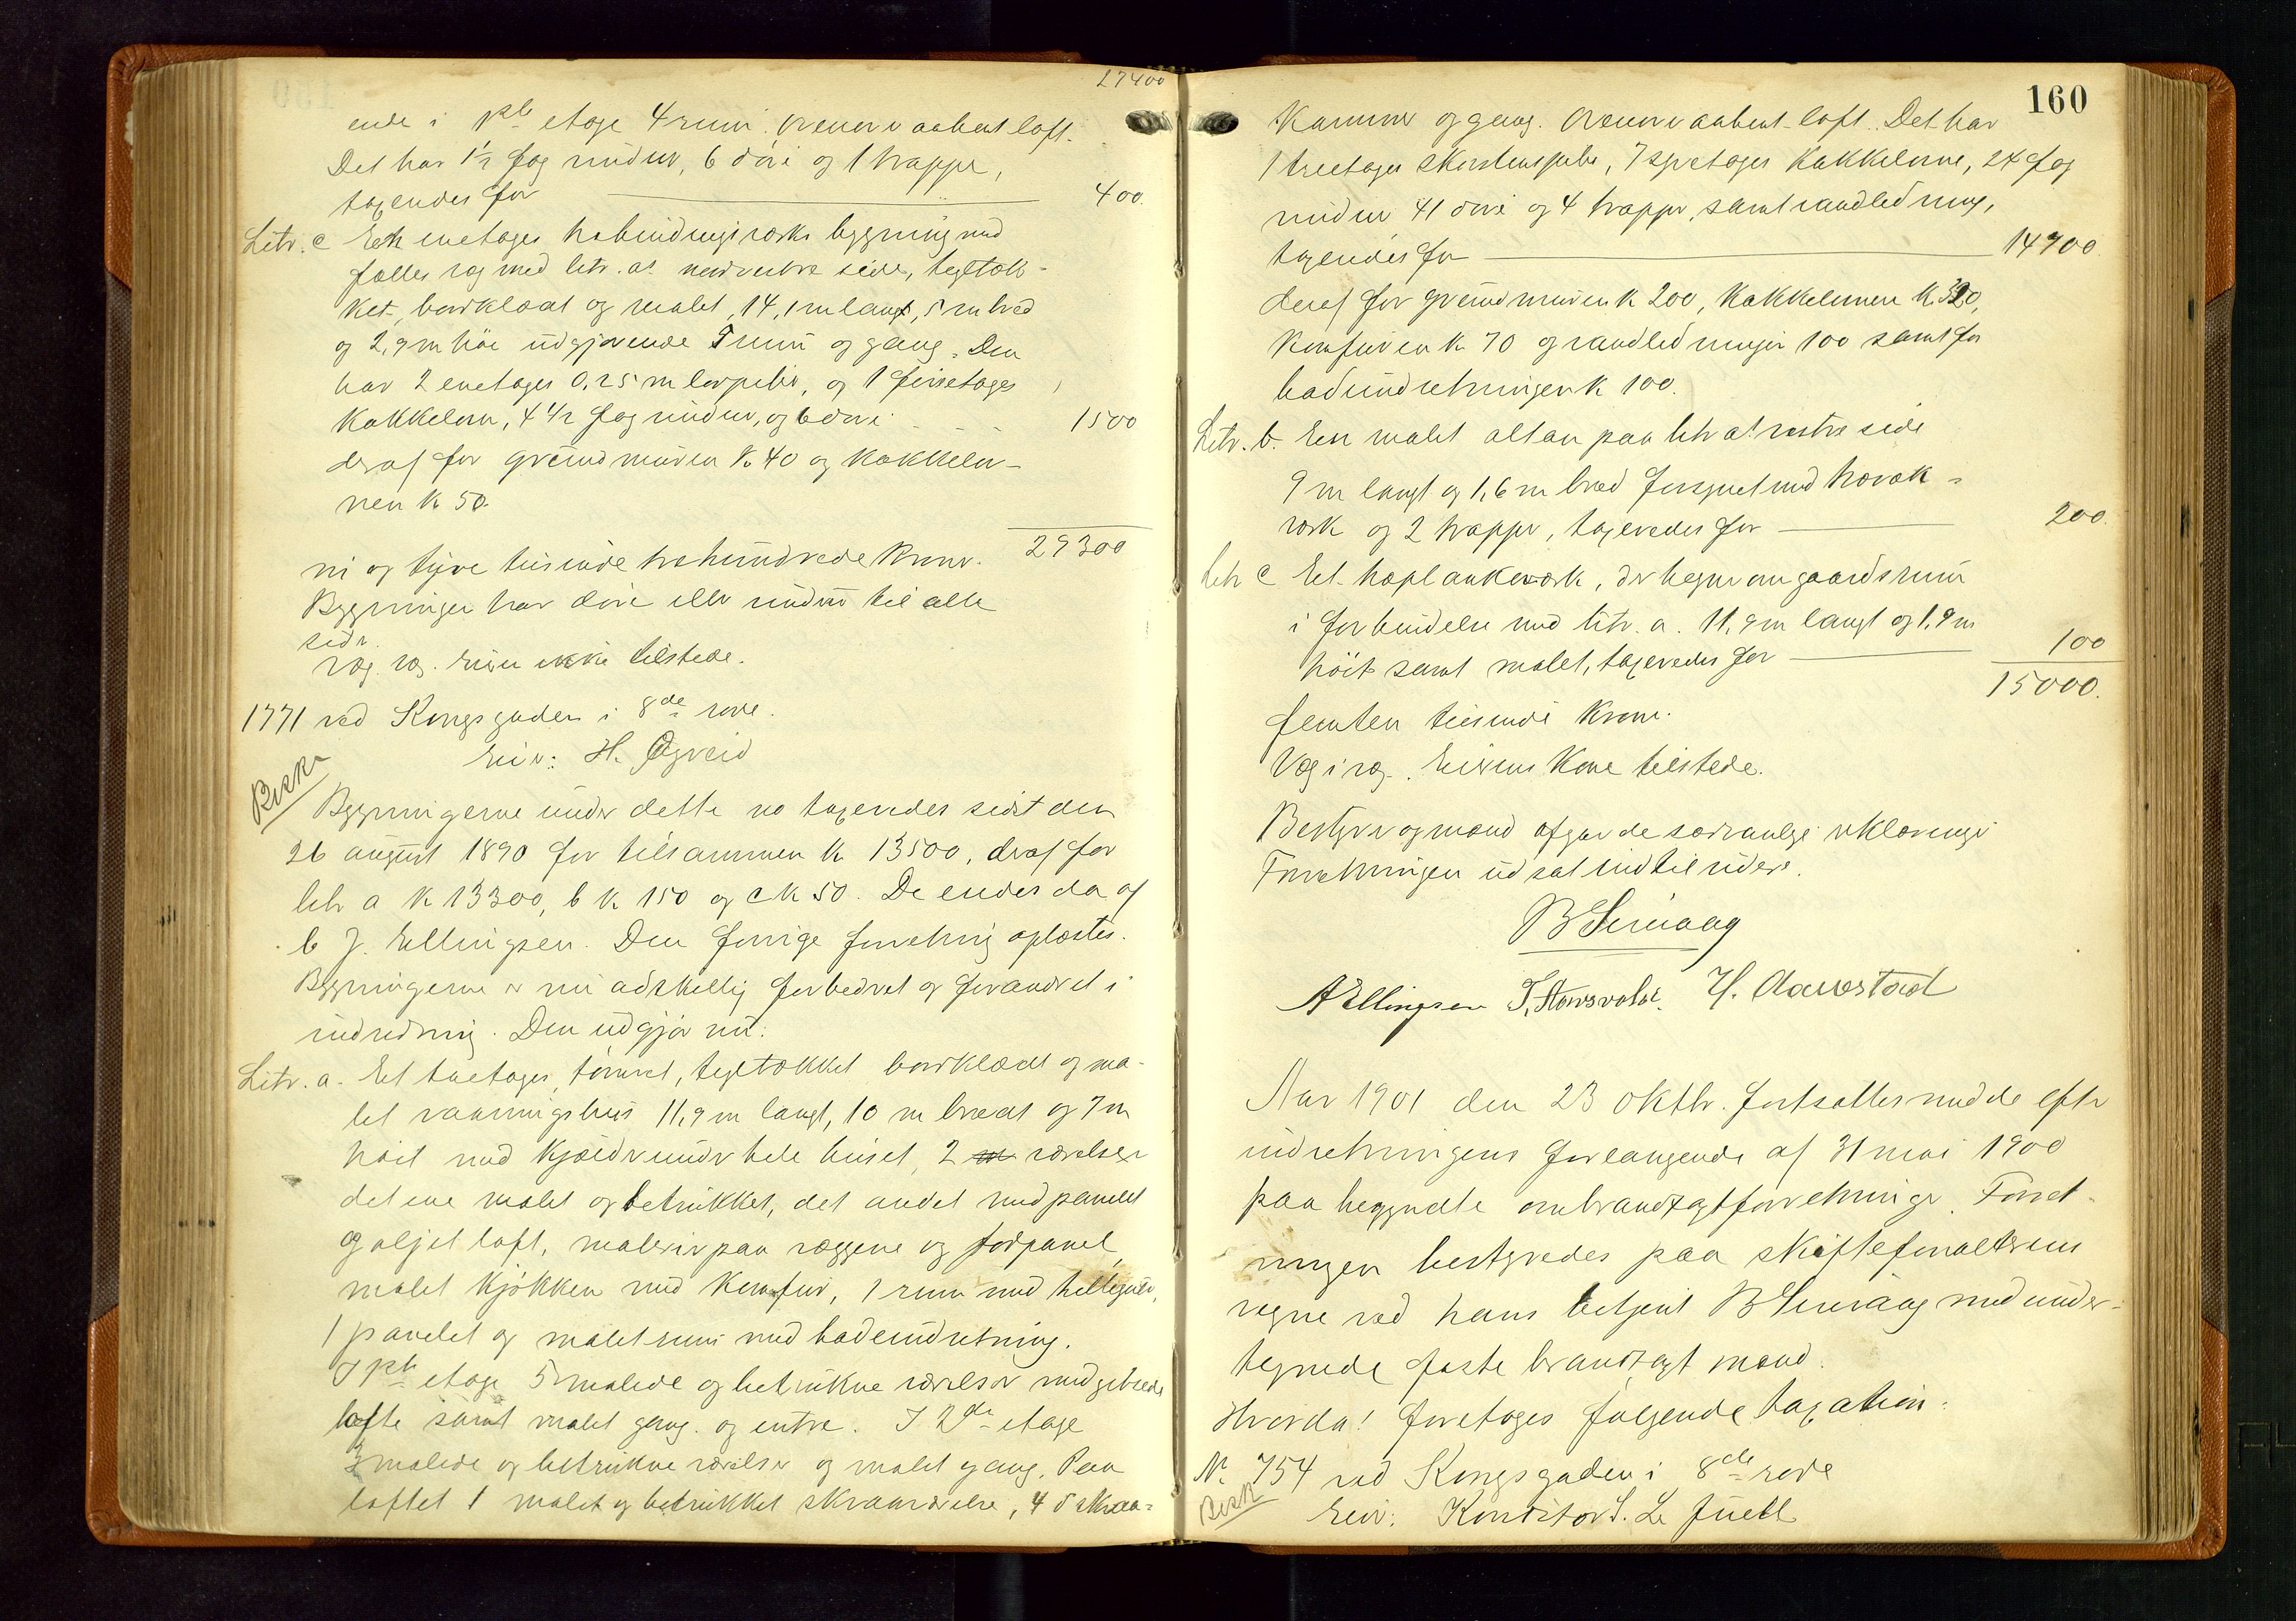 27400
ende i 1ste etage 4 rum. Ovenover aabent loft.
Det har 1½ fag vinduer, 6 døre og 1 trappe,
taxeredes for 400.
Litr. c Een enetages halvbindingsværks bygning med
fælles væg med litr. a's nordvestre side, tegltæk-
ket, bordklædt og malet, 14,1 m lang, 5 m bred
og 2,9 m høi udgjørende 5 rum og gang. Den
har 2 enetages 0,25 m lerpiber, og 1 fireetages
Kakkelovn, 4½ fag vinduer, og 6 døre 1500
deraf for grundmuren K 40 og Kakkelov-
nen K 50.
29300
ni og tyve tusinde trehundrede Kroner.
Bygningen har døre eller vinduer til alle
sider.
Væg i væg. Eieren ikke tilstede.
1771 ved Kongsgaden i 8de rode.
Eier: H. Øgreid
Besk
Bygningerne under dette no taxeredes sidst den
26 august 1890 for tilsammen K 13500, deraf for
litr a K 13300, b K 150 og c K 50. De eiedes da af
C J. Ellingsen. Den forrige forretning oplæstes.
Bygningerne er nu adskillig forbedret og forandret i
indredning. Den udgjør nu:
Litr. a. Et toetages, tømret, tegltækket bordklædt og ma-
let vaaningshus 11,9 m langt, 10 m bredt og 7 m
høit med Kjælder under hele huset, 2 værelser
det ene malet og betrukket, det andet med panelet
og oljet loft, malerier paa væggene og fodpanel,
malet Kjøkken med Komfur, 1 rum med hellegulv,
1 panelet og malet rum med badeindretning.
I 1ste etage 5 malede og betrukne værelser med gibsede
lofte samt malet gang og entre. I 2den etage
3 malede og betrukne værelser og malet gang. Paa
loftet 1 malet og betrukket skraaværelse, 4 skraa-
160
Kammer og gang. Ovenover aabent loft. Det har
1 treetages skorstenspibe, 7 Kakkelovne, 24 fag
vinduer 41 døre og 4 trapper, samt vandledning,
taxeredes for 14700.
deraf for grundmuren K 200, Kakkelovnene K 320,
Komfuren K 70 og vandledningen 100 samt for
badeindretningen K 100.
Litr. b. Een malet altan paa litr a's vestre side
9 m lang og 1,6 m bred forsynet med træræk-
værk og 2 trapper, taxeredes for 200.
Litr c Et træplankeværk, der hegner om gaardsrum
i forbindelse med litr. a. 11,9 m langt og 1,9 m
høit samt malet, taxeredes for 100
15000.
femten tusinde Kroner.
Væg i væg. Eierens Kone tilstede.
Bestyrer og mænd afgav de sædvanlige erklæringer
Forretningen udsat indtil videre.
B Smaaug
A Ellingsen T. Stavsvold. H. Aarrestad
Aar 1901 den 23 oktbr. fortsattes med de efter
indretningens forlangende af 31 mai 1900
paa begyndte ombrandtaxtforretninger. Forret-
ningen bestyredes paa skifteforvalterens
vegne ved hans betjent B Smaaug med under-
tegnede faste brandtaxtmænd.
Hvorda! foretages følgende taxation:
No 754 ved Kongsgaden i 8de rode
Besk
Eier: Konditor S. Le Juell